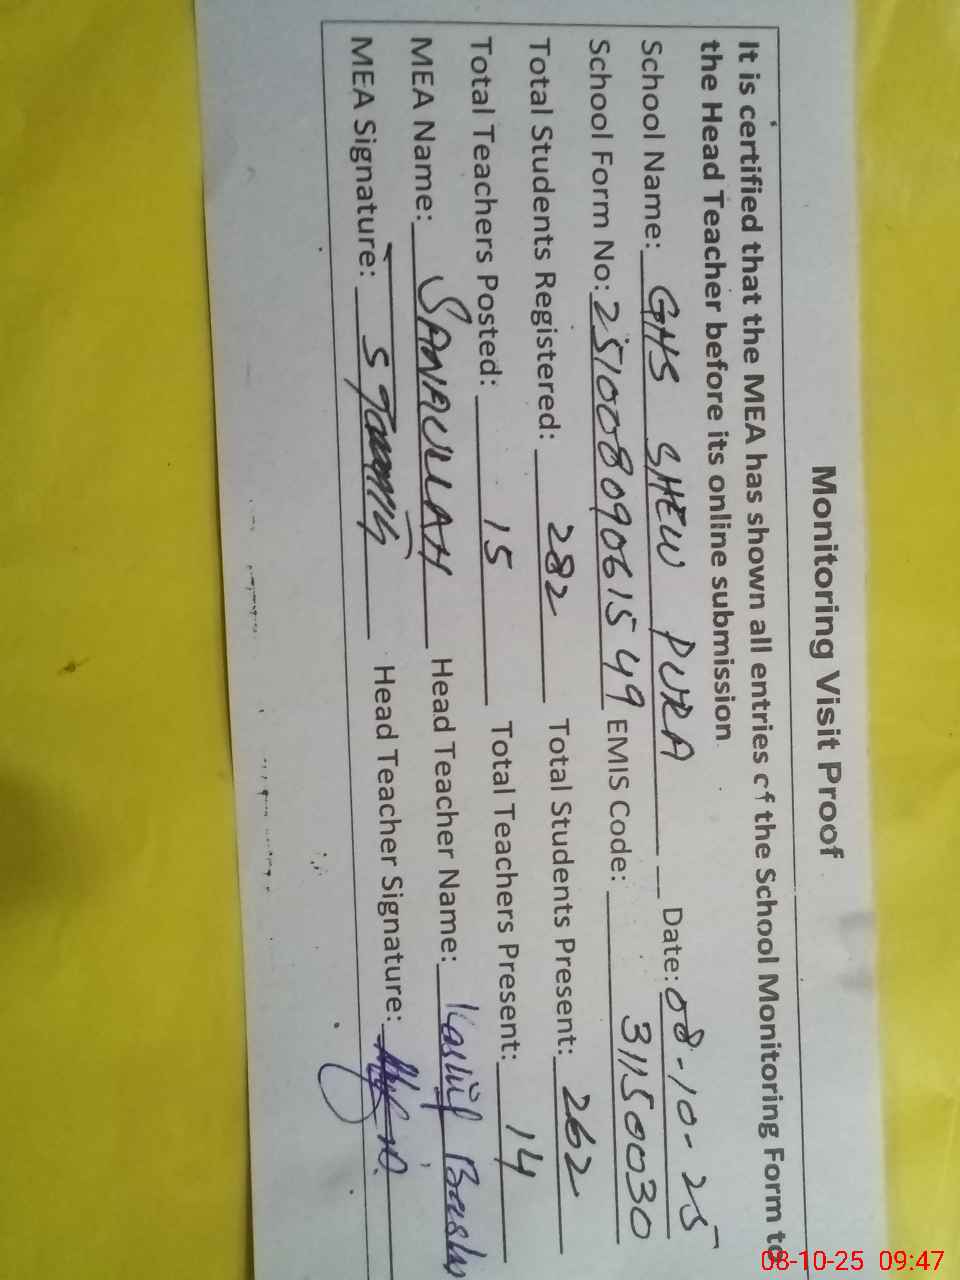 Monitoring Visit Proof
It is certified that the MEA has shown all entries of the School Monitoring Form to
the Head Teacher before its online submission.
School Name: GHS SHEW PURA Date: 08-10-25
School Form No: 25100809061549 EMIS Code: 31150030
Total Students Registered: 282 Total Students Present: 262
Total Teachers Posted: 15 Total Teachers Present: 14
MEA Name: SANAULLAH Head Teacher Name: Kashif Bashir
MEA Signature: Head Teacher Signature:
08-10-25 09:47